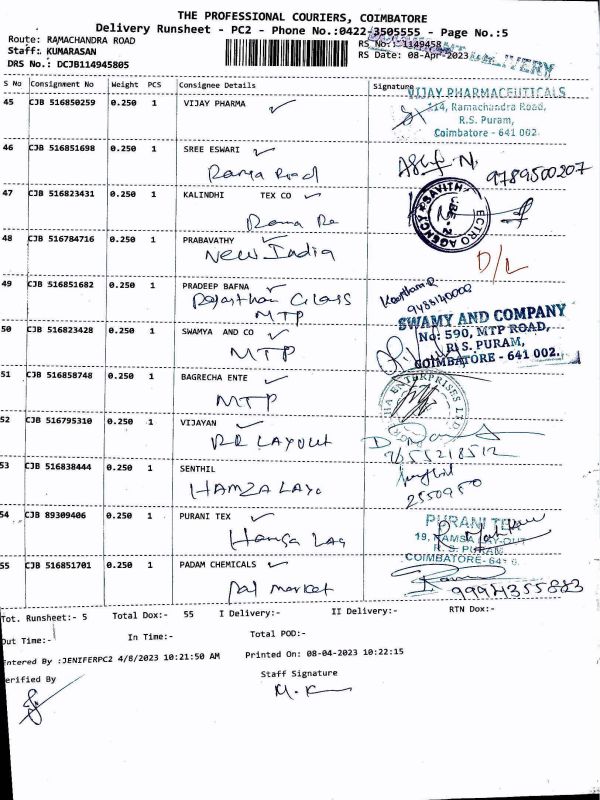 THE PROFESSIONAL COURIERS, COIMBATORE
Delivery Runsheet - PC2 - Phone No.:0422-3505555 - Page No.:5
Route: RAMACHANDRA ROAD
RS No: 1149458
DELIVERY
Staff: KUMARASAN
RS Date: 08-Apr-2023
DRS No.: DCJB114945805
S No Consignment No Weight PCS Consignee Details Signature
VIJAY PHARMACEUTICALS
45 CJB 516850259 0.250 1 VIJAY PHARMA
114, Ramachandra Road,
R.S. Puram,
Coimbatore - 641 002.
46 CJB 516851698 0.250 1 SREE ESWARI
Rama Road
9789500207
47 CJB 516823431 0.250 1 KALINDHI TEX CO
Rama Ro
SAVITH
ECTRO AGENCY
48 CJB 516784716 0.250 1 PRABAVATHY
New India
D/L
49 CJB 516851682 0.250 1 PRADEEP BAFNA
Rajasthan Glass
MTP
9488140000
50 CJB 516823428 0.250 1 SWAMYA AND CO
MTP
SWAMY AND COMPANY
No: 590, MTP ROAD,
R.S. PURAM,
COIMBATORE - 641 002.
51 CJB 516858748 0.250 1 BAGRECHA ENTE
MTP
ENTERPRISES LTD
52 CJB 516795310 0.250 1 VIJAYAN
RR LAYOUT
53 CJB 516838444 0.250 1 SENTHIL
HAMZA LAYO
2550950
54 CJB 89309406 0.250 1 PURANI TEX
Hamsa Lay
PURANI TEX
19, HAMSA LAY-OUT
R. S. PURAM
COIMBATORE-641
55 CJB 516851701 0.250 1 PADAM CHEMICALS
Pal market
Tot. Runsheet:- 5 Total Dox:- 55 I Delivery:- II Delivery:- RTN Dox:-
Out Time:- In Time:- Total POD:-
Entered By :JENIFERPC2 4/8/2023 10:21:50 AM Printed On: 08-04-2023 10:22:15
Verified By
Staff Signature
M. K